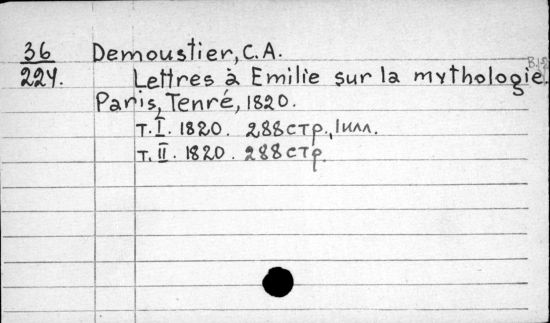 36
224.
Demoustier, C.A.
Lettres à Emilie sur la mythologie.
Paris, Tenré, 1820.
т. I. 1820. 288 стр., 1 илл.
т. II. 1820. 288 стр.